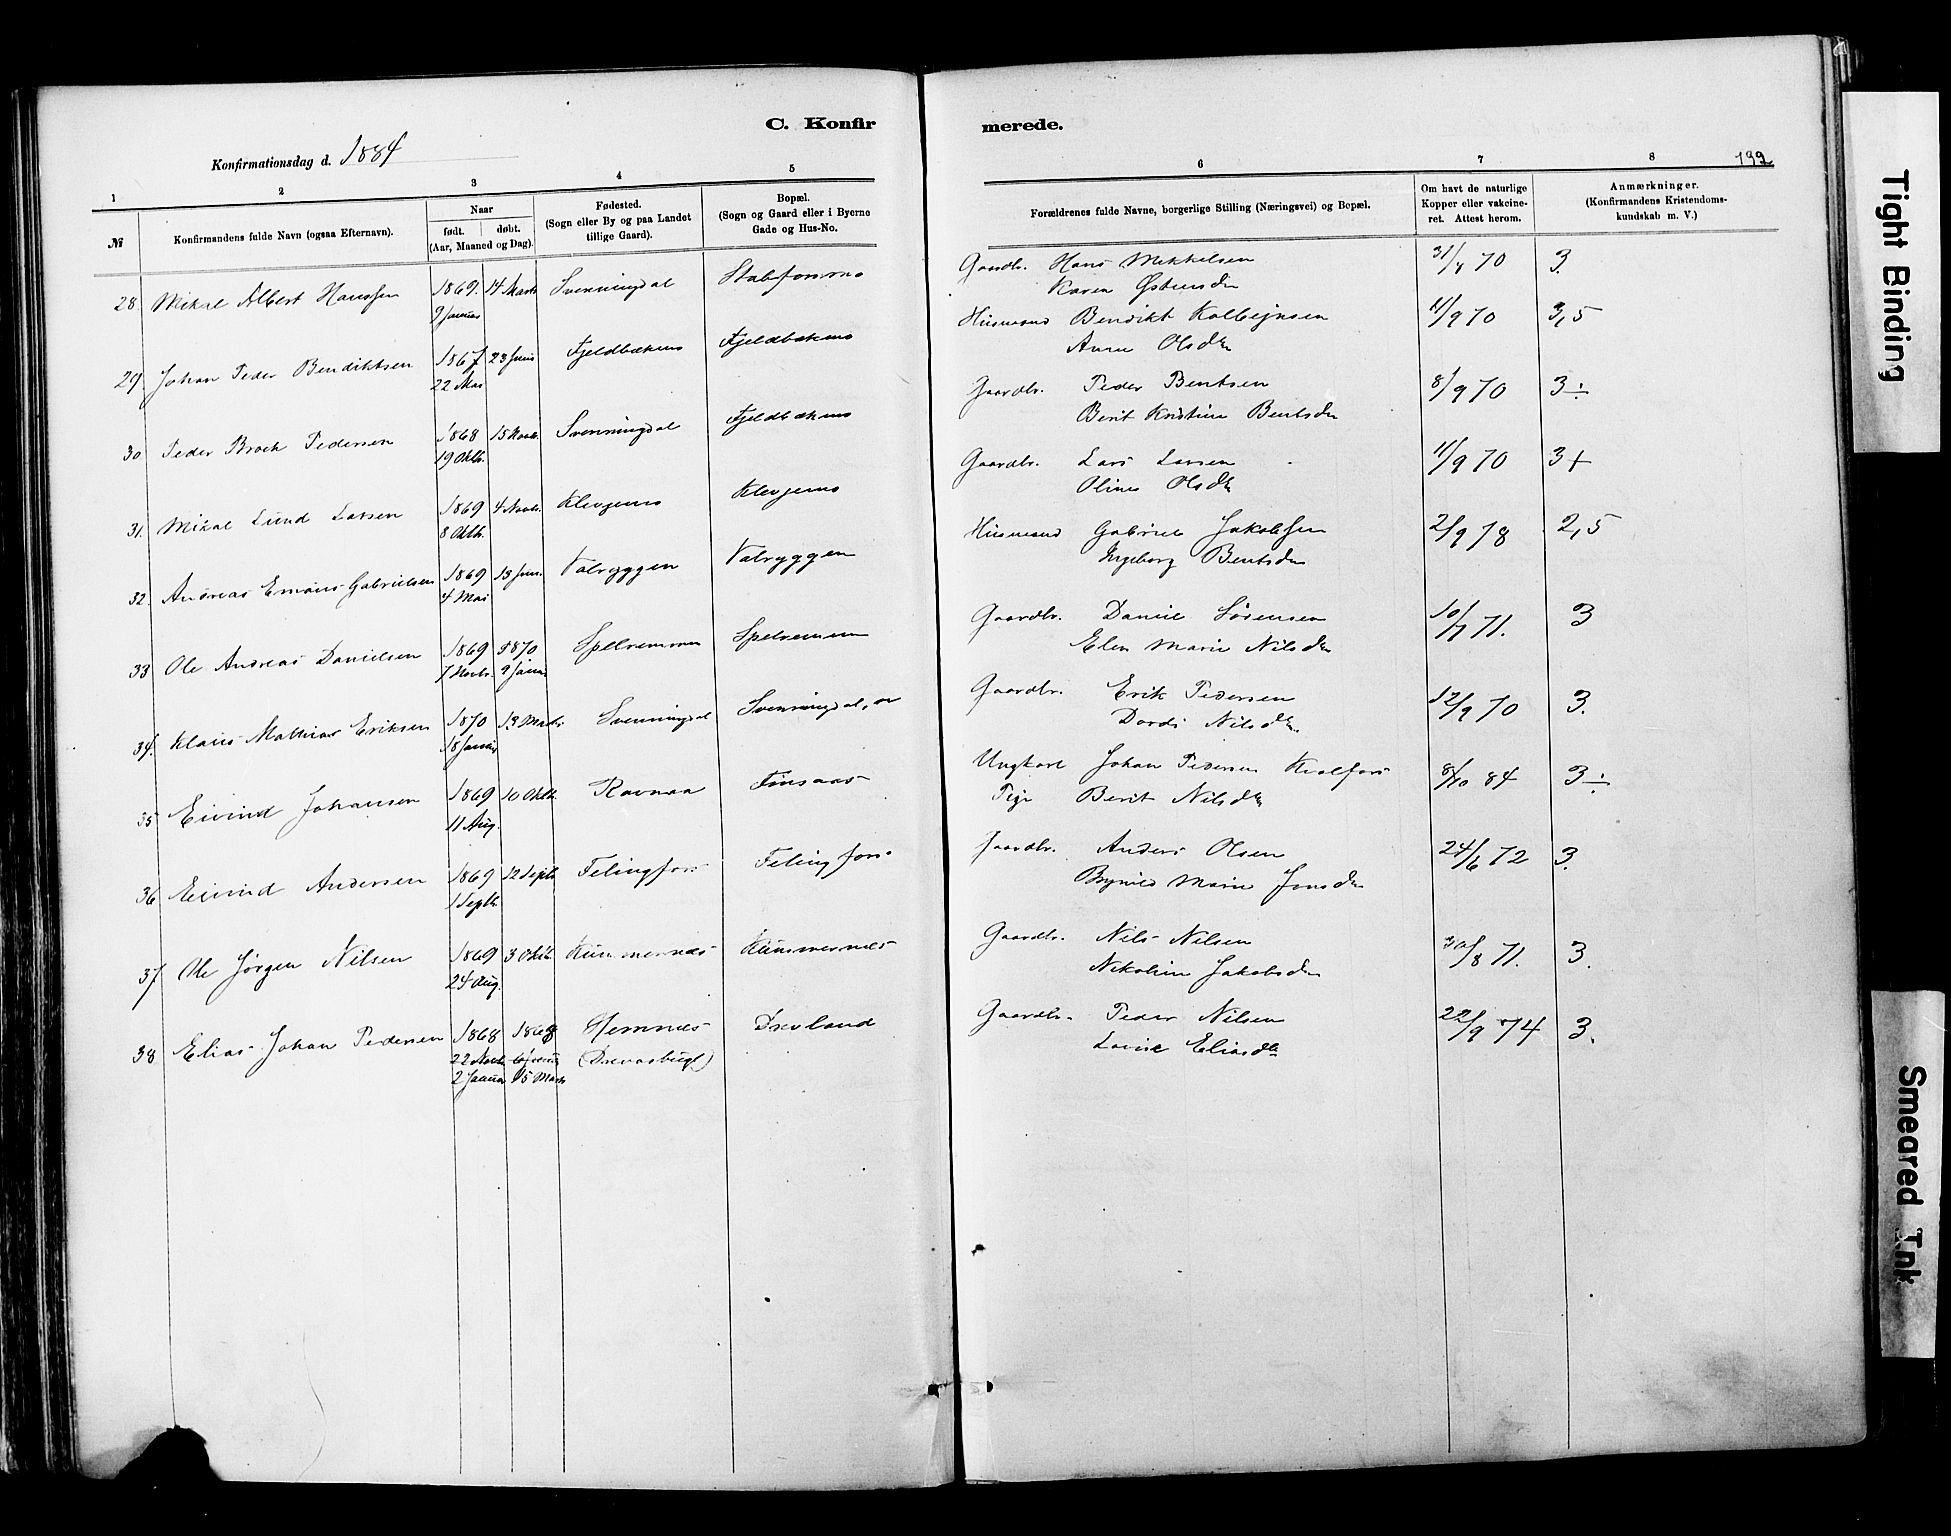 C. Konfirmerede.
Konfirmationsdag d. 1884
192
1 2 3 4 5 6 7 8
№ Konfirmandens fulde Navn (ogsaa Efternavn). Naar født. døbt. (Aar, Maaned og Dag). Fødested. (Sogn eller By og paa Landet tillige Gaard). Bopæl. (Sogn og Gaard eller i Byerne Gade og Hus-No. Forældrenes fulde Navne, borgerlige Stilling (Næringsvei) og Bopæl. Om havt de naturlige Kopper eller vakcineret. Attest herom. Anmærkninger. (Konfirmandens Kristendomskundskab m. V.)
28. Mikal Albert Hanssen 1869. 14 Marts Svenningdal Stabforsmo Gaardbr. Hans Mikkelsen 70 3.
9 Januar Karen
29. Johan Peder Bendiktsen 1867 23 Juni Fjeldbækmo Fjeldbækmo Husmand Bendikt Kolbejnsen 11/9 70 3,5
22 Mai Anne Olsdtr
30 Peder Brock Pedersen 1868 15 Novb. Svenningdal Fjeldbækmo Gaardbr. Peder Bentsen 8/9 70 3÷
19 Oktb. Berit Kristine Bentsdtr
31. Mikal Lund Larsen 1869 4 Novb. Klevjemo Klevjemo Gaardbr. Lars Larsen 11/9 70 3+
8 Oktb. Oline Olsdtr
32. Andreas Emaus Gabrielsen 1869 13 Juni. Valryggen Valryggen Husmand Gabriel Jakobsen 2/9 78 2,5
4 Mai Ingeborg Bentsdtr
33 Ole Andreas Danielsen 1869 1870 Spelremmen Spelremmen Gaardbr. Daniel Sørensen 71. 3
7 Novbr. 9 Januar Elen Marie Nilsdtr
34. Klaus Mathias Eriksen 1870 13 Marts Svenningdal Svenningdal, Gaardbr. Erik Pedersen 12/9 70 3.
18 Januar Dordi Nilsdtr.
35 Eivind Johansen 1869 10 Oktb. Ravnaa Finsaas Ungkarl Johan Pedersen Kvalfors 8/10 84 3÷
11 Aug. Pige Berit Nilsdtr
36 Eivind Andersen 1869 12 Septb. Felingfors Felingfors Gaardbr. Anders Olsen 24/6 72 3.
1 Septb. Marie Jonsdtr
37 Ole Jørgen Nilsen 1869 3 Oktb. Kummernæs Kummernæs Gaardbr. Nils Nilsen 30/8 71. 3.
24 Aug. Nikoline Jakobsdtr
38 Elias Johan Pedersen 1868 1868 Hemnæs Drevland Gaardbr. Peder Nilsen 22/9 74 3.
22 Novb. (Drevasbugt) Lovise Eliasdtr
2 Januar 15 Marts
Tight Binding
Smeared Ink